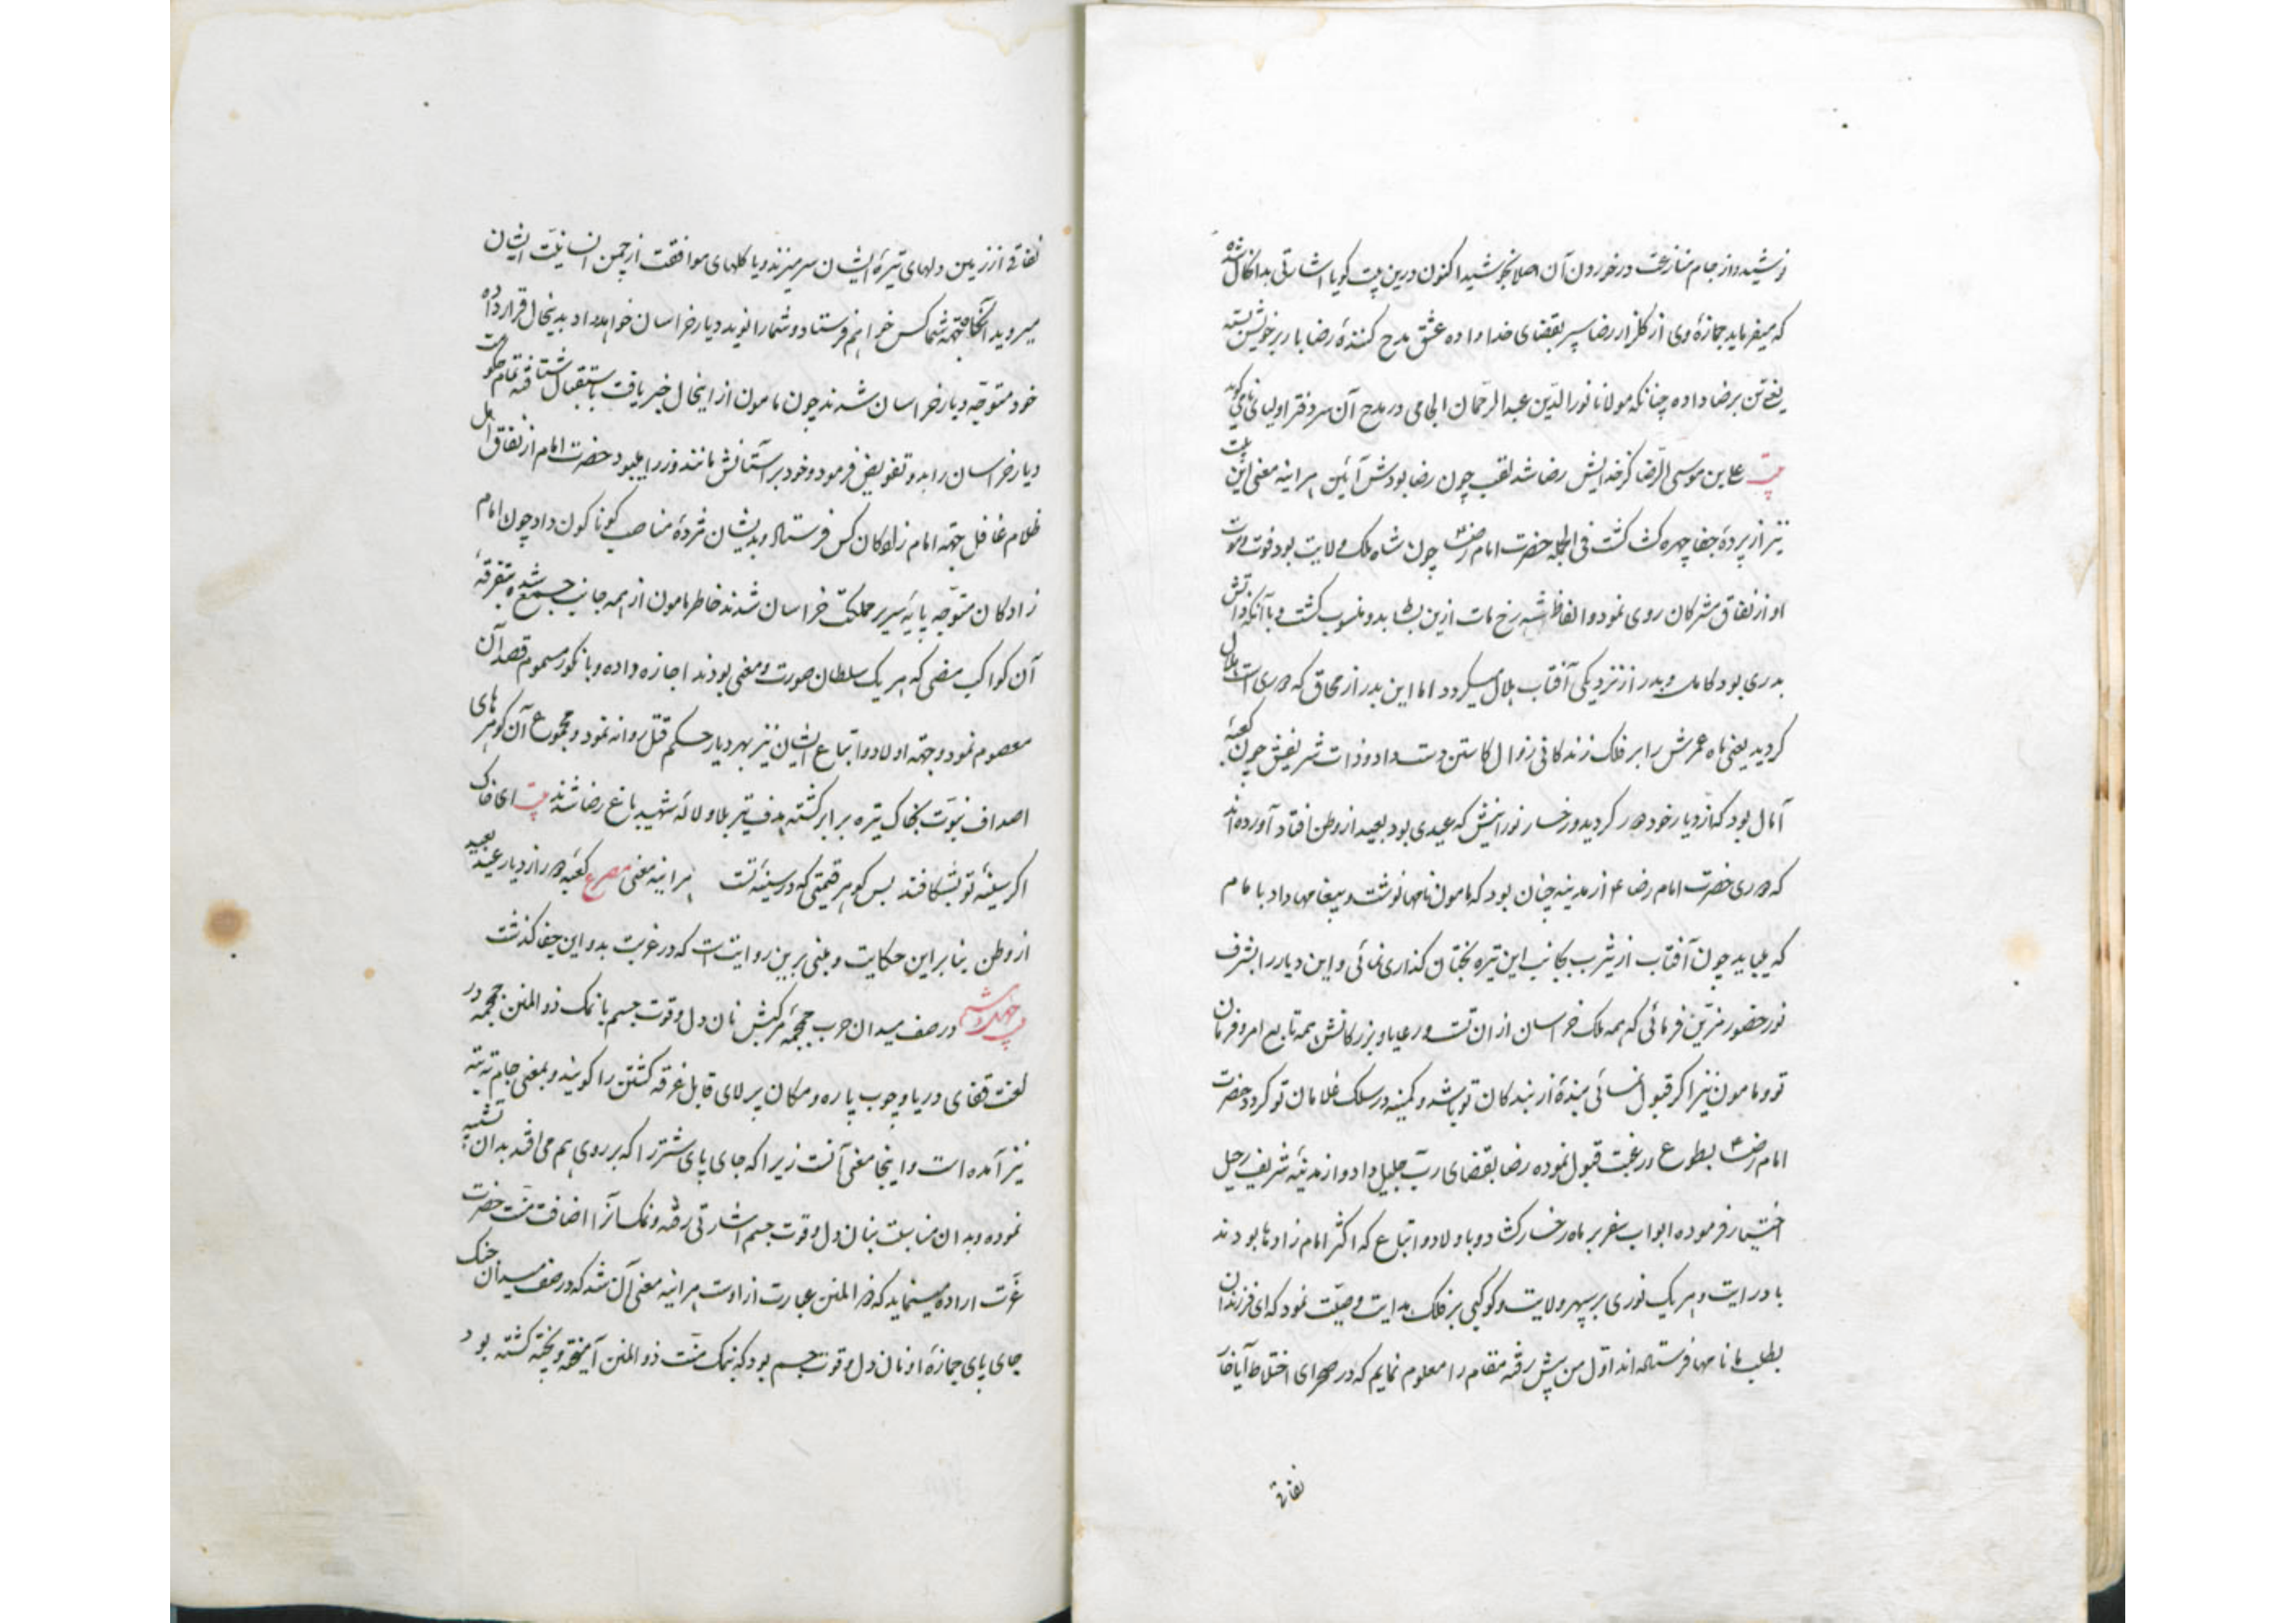 نوشید و از جام منازعت در خوردن آن اصلا نجوشید اکنون درین بیت گویا اشارتی بدانکال شده
که میفرماید جمازهٔ وی از گلزار رضا سپر بقضای خدا داده عشق مدح کنندهٔ رضا بار بر خویشتن بسته
یعنی تن برضا داده چنانکه مولانا نور الدین عبد الرحمان الجامی در مدح آن سر دفتر اولیا می گوید
بیت علی بن موسی الرضا کز خدایش رضا شد لقب چون رضا بودش آئین هر اینه معنی این بیت
نیز از پردهٔ خفا چهره کشا گشت فی الجمله حضرت امام رضا چون شاه ملک ولایت بود فوت و موت
او از نفاق مشرکان روی نمود و الفاظ شه رخ مات ازین بدو منسوب گشت و با آنکه ذاتش
بدری بود کامل و بدر از نزدیکی آفتاب هلال میگردد اما این بدر از محاق که دوری است هلال
گردید یعنی ماه عمرش را بر فلک زندگانی زوال کاستن دست داد و ذات شریفش چون کعبهٔ
آمال بود که از دیار خود دور گردید و رخسار نورانیش که عیدی بود بعید از وطن افتاد آورده اند
که دوری حضرت امام رضا ع از مدینه چنان بود که مامون نامها نوشت و پیغامها داد با امام
که بیاید چون آفتاب از یثرب بجانب این تیره بختان گذاری نمائی و این دیار را بشرف
نور حضور مزین فرمائی که همه ملک خراسان از ان تست و رعایا و بزرگانش همه تابع امر و فرمان
تو و مامون نیز اگر قبول نمائی بندهٔ از بندکان تو باشد و کمینه در سلک غلامان تو گردد حضرت
امام رضا بطوع و رغبت قبول نموده رضا بقضای رب جلیل داد و از مدینه شریف رحیل
اختیار فرموده ابواب سفر بر ماه رخسار کشاد و با ولاد و اتباع که اکثر امام زادها بودند
با درایت و هر یک نوری بر سپهر ولایت و کوکبی بر فلک هدایت وصیت نمود که ای فرزندان
بطلب ما نامها فرستاده اند اول من پیش رفته مقام را معلوم نمایم که در صحرای اختلاط آیا خار
نفاقی
نفاقی از زمین دلهای تیرهٔ ایشان سر میزند و یا گلهای موافقت از چمن انسانیت ایشان
میروید آنگاه بجهة شما کس خواهم فرستاد و شما را نوید دیار خراسان خواهم داد بدینحال قرار داده
خود متوجه دیار خراسان شدند چون مامون از اینحال خبر یافت باستقبال شتافته تمام حکومت
دیار خراسان را بدو تفویض فرمود و خود بر آستانش مانند وزرا میبود حضرت امام از نفاق اهل
ظلام غافل بجهة امام زادکان کس فرستاد و بدیشان مژدهٔ مناصب گوناگون داد چون امام
زادکان متوجه پایهٔ سریر مملکت خراسان شدند خاطر مامون از همه جانب جمع شده بتفرقهٔ
آن کواکب مضی که هر یک سلطان صورت و معنی بودند اجازه داده و بانگور مسموم قصد آن
معصوم نمود و بجهة اولاد و اتباع ایشان نیز بهر دیار حکم قتل روانه نمود و مجموع آن گوهرهای
اصداف نبوت بخاک تیره برابر گشته هدف تیر بلا و لالهٔ شهید باغ رضا شدند بیت ای خاک
اگر سینهٔ تو بشکافند بس گوهر قیمتی که در سینهٔ تست هر اینه معنی مصرع کعبه دور از دیار عید بعید
از وطن بنا بر این حکایت و مبنی برین روایتست که در غربت بدو این جفا گذشت
در صف میدان حرب جمجمهٔ مرکبش نان دل و قوت جسم با نمک ذو المنن جمجمه در
لغت قفای دریا و چوب پاره و مکان پر لای قابل غرقه گشتن را گویند و بمعنی جام ته بته
نیز آمده است و اینجا معنی آنست زیرا که جای پای شتر را که بر روی هم می افتد بدان تشبیه
نموده و بدان مناسبت بنان دل و قوت جسم اشارتی رفته و نمک آنرا اضافت بمنت حضرت
عزت اراده مینماید که ذو المنن عبارت از اوست هر اینه معنی آن شد که در صف میدان جنگ
جای پای جمازهٔ او نان دل و قوت جسم بود که بنمک منت ذو المنن آمیخته و پخته گشته بود